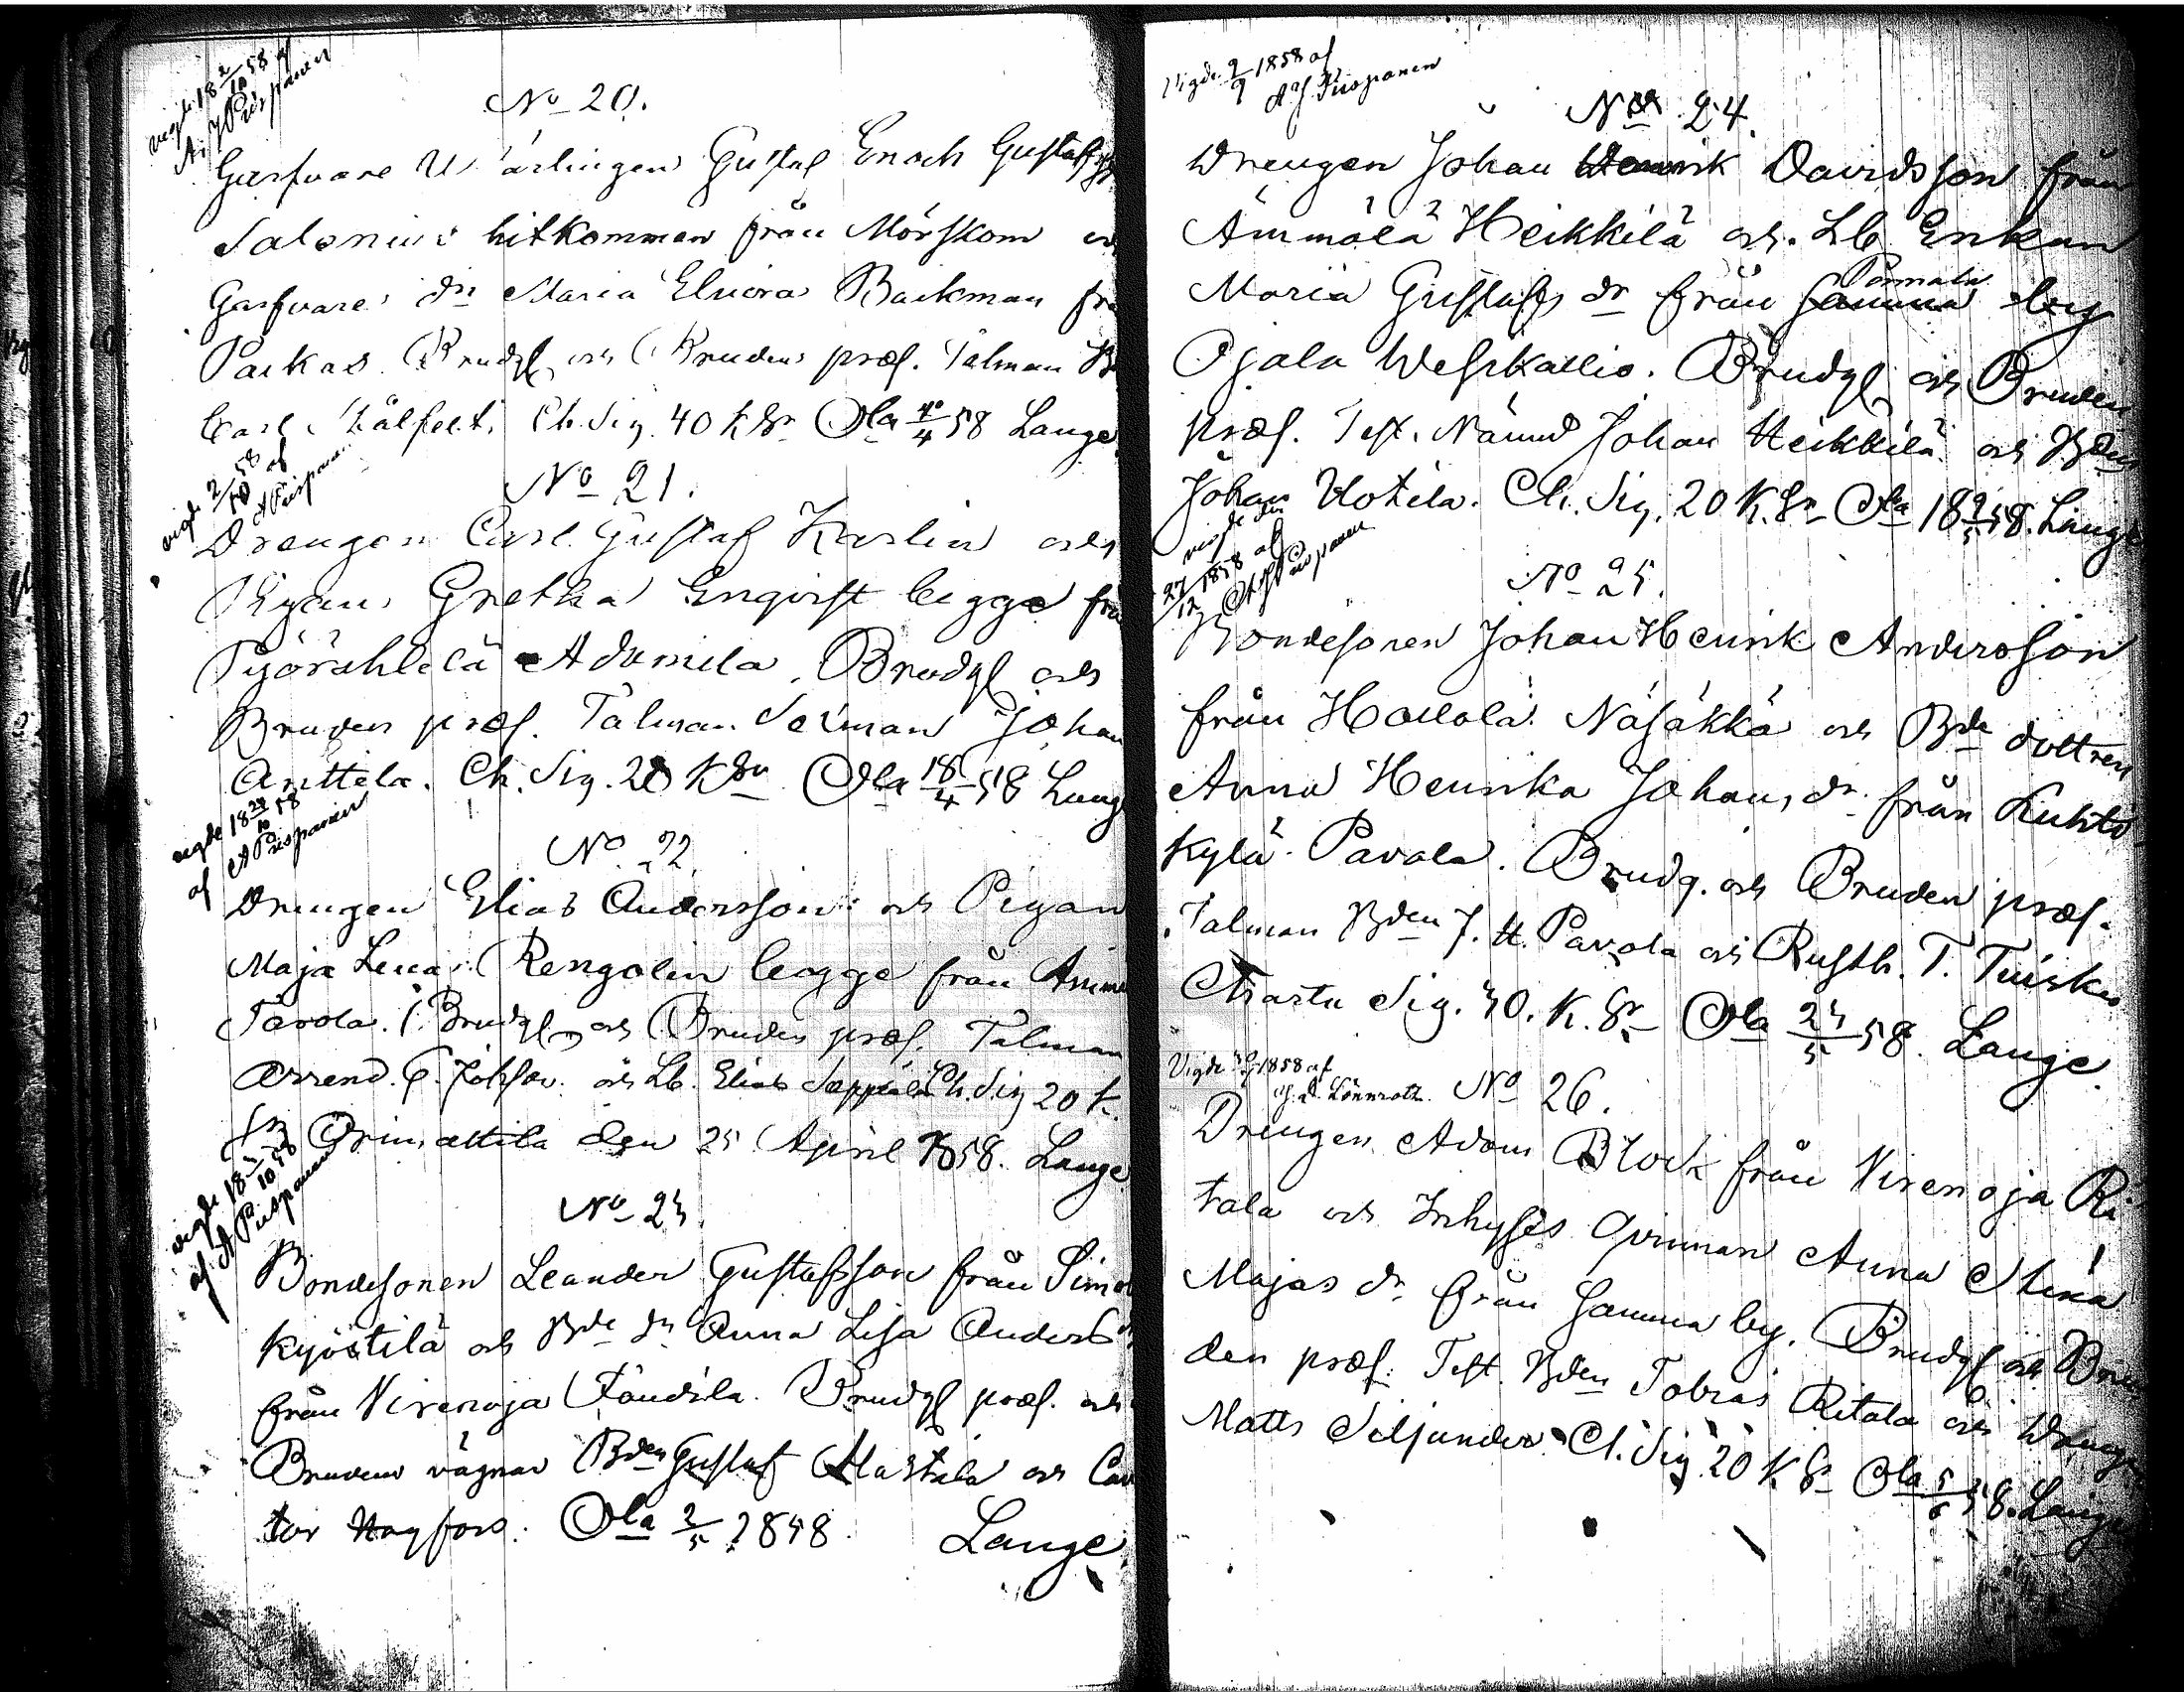 vigde 18 2/10 58 af
A. J. Piispanen
No 20.
Garfvare Gustaf Enoch Gustafss
Salenius hitkommen från Mörskom och
Garfvare dr Maria Elviora Backman frå
Parkas. Brudgl och Brudens præs. Talman
Carl Ch. Sig. 40 K Sr Ola 10/4 58 Lange
vigde 2/10 58 af
A Piispanen
No 21.
Drengen Carl Gustaf Karlin och
Pigan Gretha Enqvist begge frå
Pyörählelä Adamila. Brudgl och
Bruden præs. Talman Johan
Anttela. Ch. Sig. 20 K Sr Ola 18/4 58 Lang
vigde 18 24/10 58
af A Piispanen
No 22.
Drengen Elias Andersson och Pigan
Maja Lena Rengolin begge från Ämmä
Tavola. Brudgl och Bruden præs. Talman
Arrend. och Lb. Elias Seppälä Ch. Sig 20 K.
Sr Orimattila den 25 April 1858. Lange
vigde 18 10 58
af A Piispanen
No 23
Bondesonen Leander Gustafsson från Simo
Kyöstilä och Bde dr Anna Lisa Anders dr
från Virenoja Töudila. Brudgl præs. och
Brudens vägnar Bden Gustaf Mastala och Can
tor Hagfors. Ola 2/5 1858. Lange.
Vigde 9/9 1858 af
A J Piispanen
No 24.
Drengen Johan Henrik Davidsson från
Ämmälä Heikkilä och Lb Enkan
Maria Gustafs dr från samma Pånnala by
Ojala Wesikallio. Brudgl och Bruden
præs. Test. Nämnd Johan Heikkilä och Bden
Johan Uotila. Ch. Sig. 20 K. Sr Ola 18 9/5 58. Lange
vigde den
27/12 1858 af
A J Piispanen
No 25.
Bondesonen Johan Henrik Andersson
från Hollola Näsäkkä och Bde dottren
Anna Henrika Johans dr från Kuhto
kylä Pavola. Brudg. och Bruden præs.
Talman Bden J. H. Pavola och Rusth. T. Tuisku
Charta Sig. 30. K. Sr Ola 23/5 58. Lange
Vigde 1858 af
J. Lönnroth.
No 26.
Drengen Adam Block från Virenoja Ri
tala och Inhyses Qvinnan Anna Stina
Majas dr från samma by. Brudgl och Bru
den præs. Test. Bden Tobias Ritala och Drengen
Matts Siljander. Ch. Sig 20 K Sr Ola 5/6 58. Lange